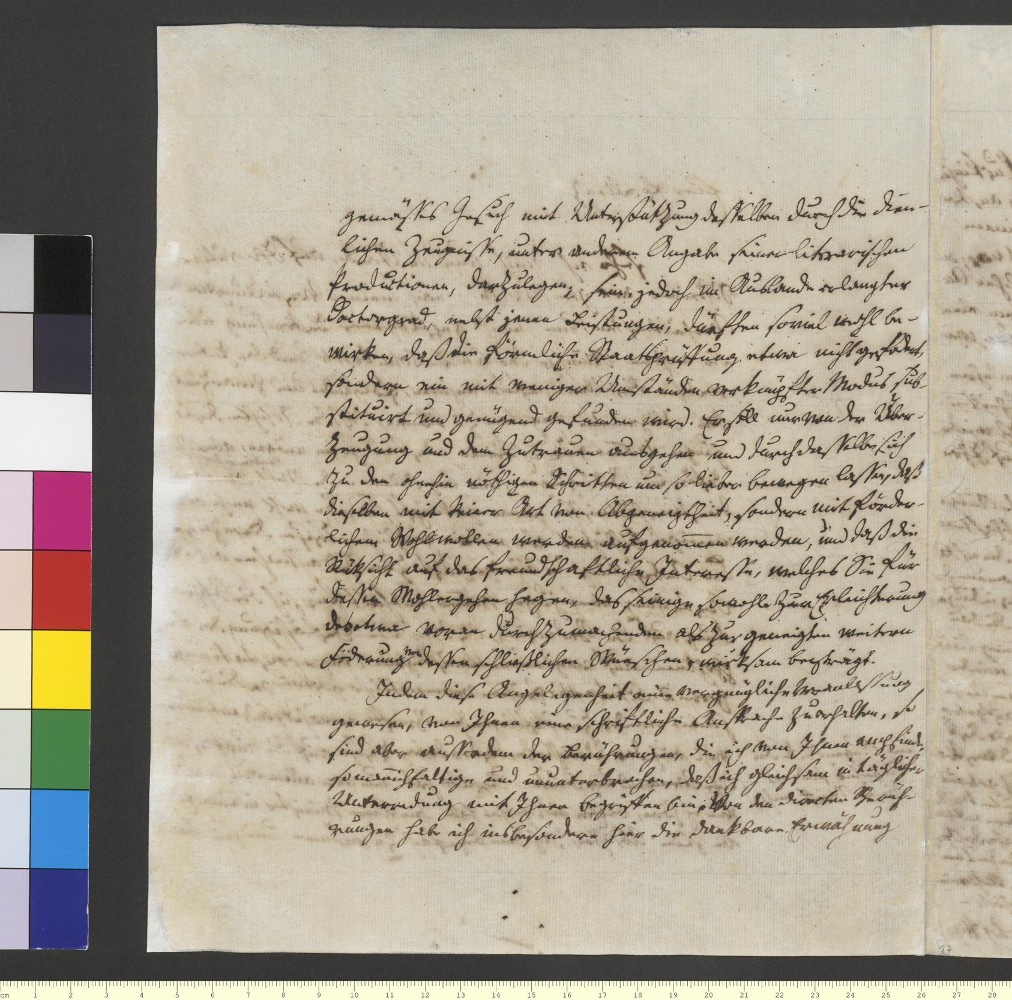 gemäßes Gesuch mit Unterstützung desselben durch die dien-
lichen Zeugnisse, unter anderem Angabe seiner literarischen
Productionen, darzulegen; sein jedoch im Auslande erlangter
Doctorgrad, nebst jenen Leistungen, dürften soviel wohl be-
wirken, daß die förmliche Staatsprüffung etwa nicht gefodert,
sondern ein mit weniger Umständen verknüpfter Modus sub-
stituirt und genügend gefunden wird. Er soll nur von der Über-
zeugung und dem Zutrauen ausgehen und durch dasselbe sich
zu den ohnehin nöthigen Schritten um so lieber bewegen lassen, daß
dieselben mit keiner Art von Abgeneigtheit, sondern mit förder-
lichem Wohlwollen werden aufgenom̅en werden, und daß die
Rüksicht auf das freundschaftliche Interesse, welches Sie für
dessen Wohlergehen hegen, das seinige sowohl zur Erleichterung
des etwa voran durchzumachenden als zur geneigten weitern
Föderung von dessen schließlichen Wünschen, wirksam beyträgt.
Indem diese Angelegenheit eine vergnügliche Veranlassung
gewesen, von Ihnen eine schriftliche Ansprache zu erhalten, so
sind aber ausserdem der Berührungen, die ich von Ihnen empfinde,
so manichfaltige und ununterbrochen, daß ich gleichsam in täglicher
Unterredung mit Ihnen begriffen bin; Von den directen Berüh-
rungen hab ich insbesondere hier die dankbare Erwähnung